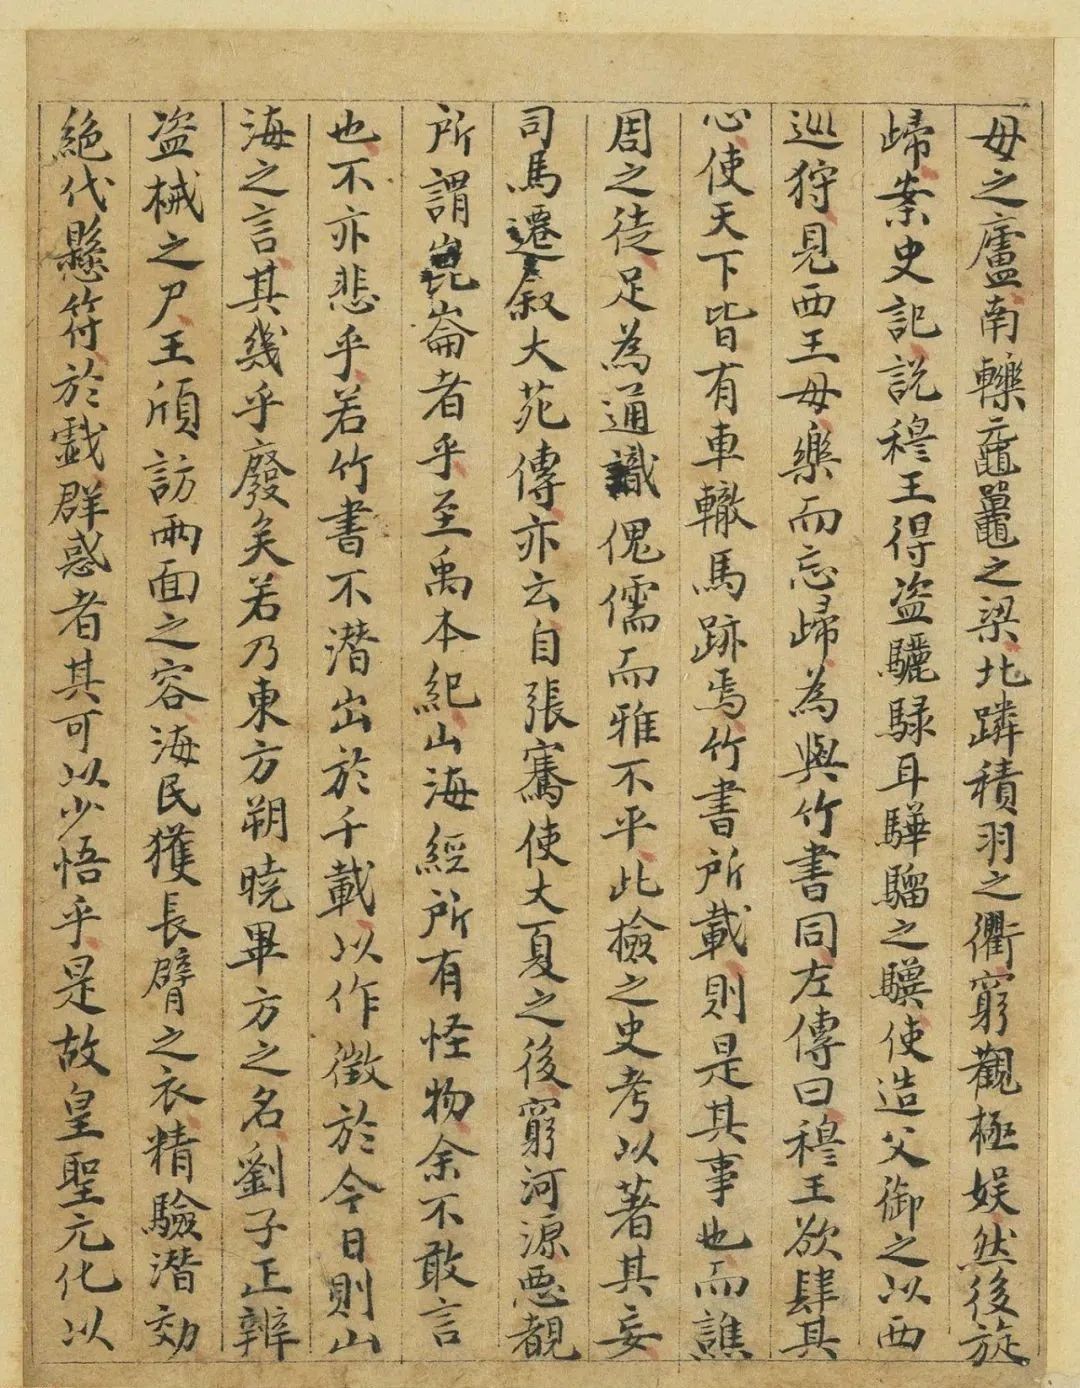 母之廬南轢黿鼉之梁北躪積羽之衢窮觀極娱然後旋
歸案史記説穆王得盗驪騄耳驊騮之驥使造父御之以西
巡狩見西王母樂而忘歸為與竹書同左傳曰穆王欲肆其
心使天下皆有車轍馬跡焉竹書所載則是其事也而譙
周之徒足為通識傀儒而雅不平此檢之史考以著其妄
司馬遷叙大苑傳亦云自張騫使大夏之後窮河源惡覩
所謂崑崙者乎至禹本紀山海經所有怪物余不敢言
也不亦悲乎若竹書不潜出於千載以作徴於今日則山
海之言其幾乎廢矣若乃東方朔曉畢方之名劉子正辨
盗械之尸王頎訪兩面之容海民獲長臂之衣精驗潜効
絶代懸符於戲群惑者其可以少悟乎是故皇聖元化以